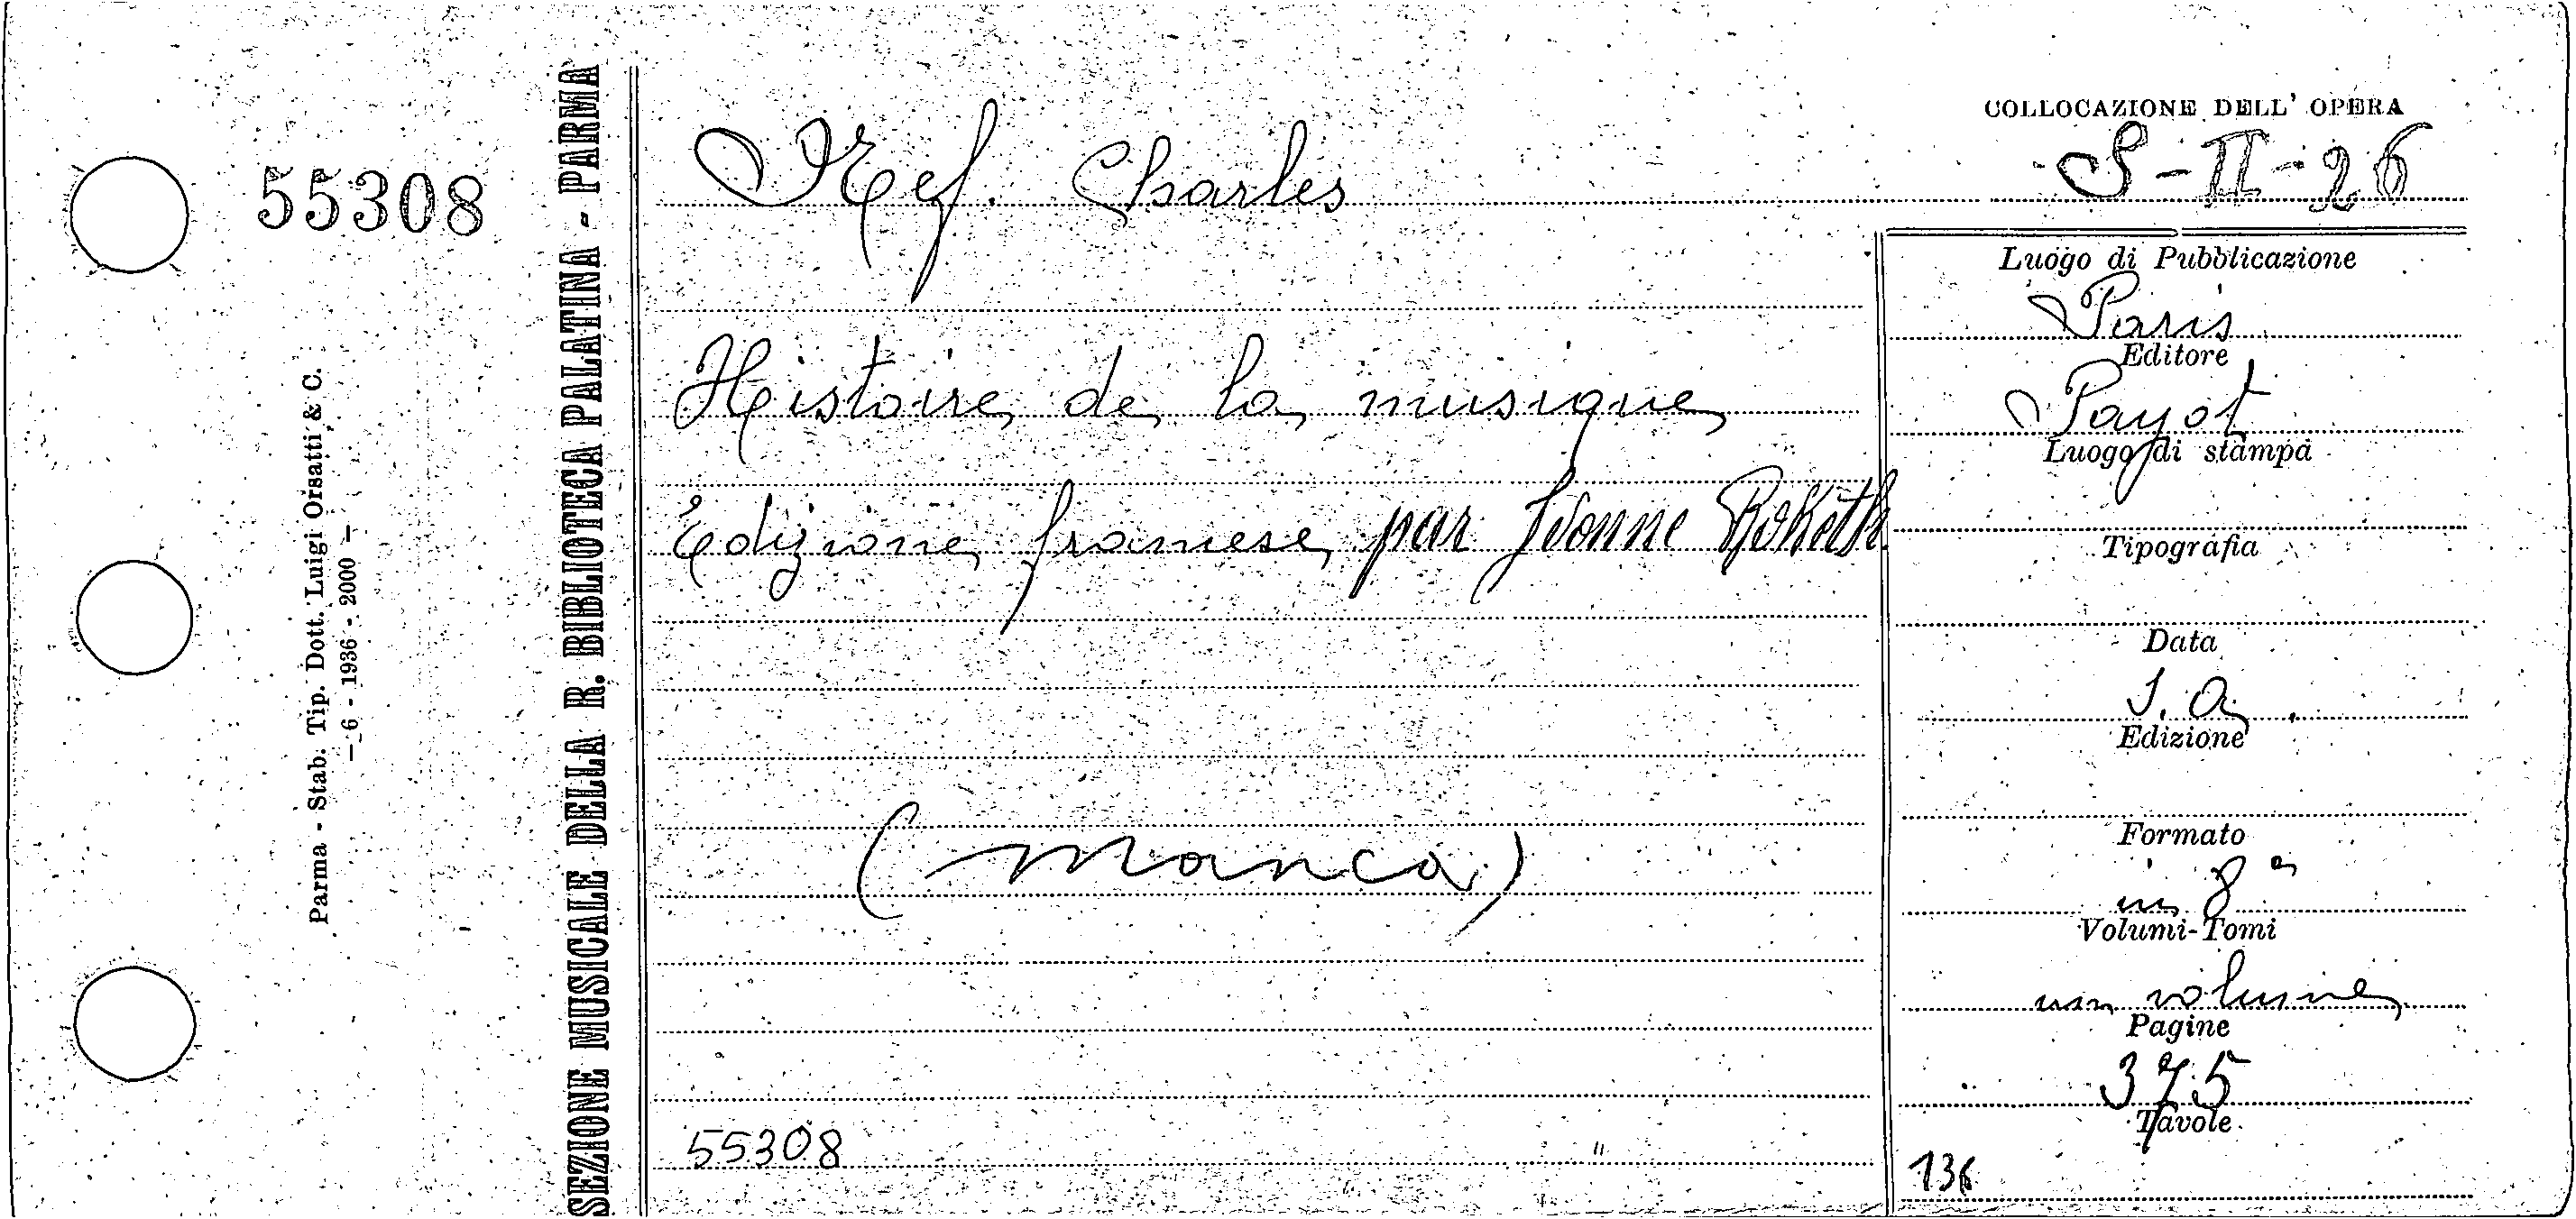 55308
Parma - Stab. Tip. Dott. Luigi Orsatti & C.
— 6 - 1936 - 2000 —
SEZIONE MUSICALE DELLA R. BIBLIOTECA PALATINA - PARMA
Nef. Charles
Histoire de la musique
Edizione francese par Ivonne Rokseth
(manca)
55308
COLLOCAZIONE DELL' OPERA
S-II-26
Luogo di Pubblicazione
Paris
Editore
Payot
Luogo di stampa
Tipografia
Data
s. a.
Edizione
Formato
in 8°
Volumi-Tomi
un volume
Pagine
375
Tavole
136